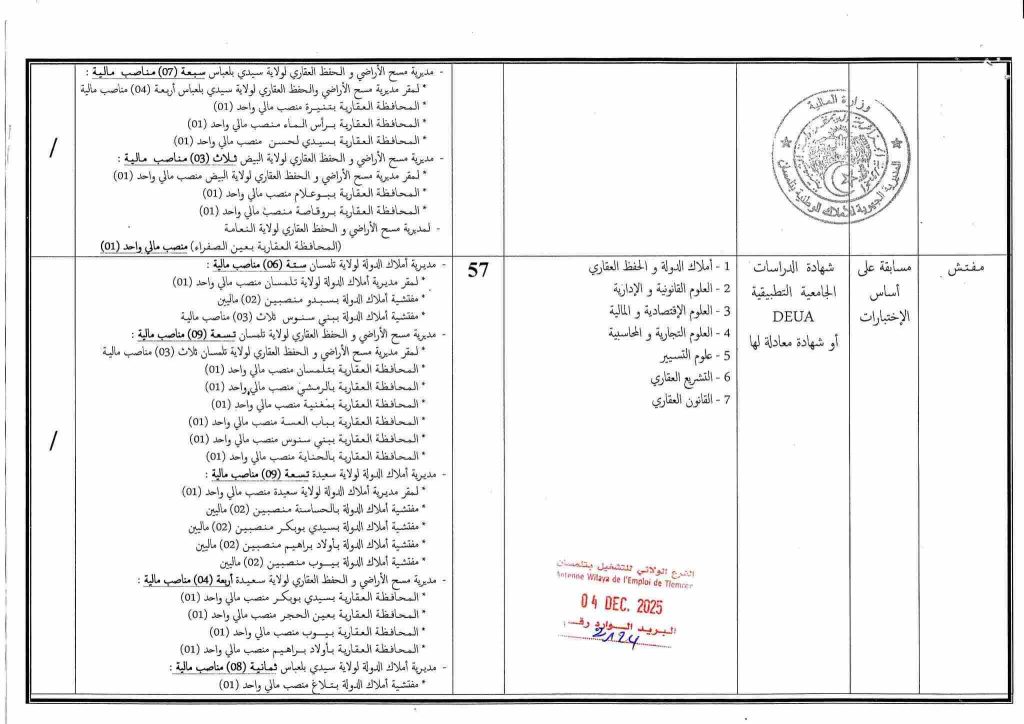 - مديرية مسح الأراضي و الحفظ العقاري لولاية سيدي بلعباس سبعة (07) مناصب مالية :
* لمقر مديرية مسح الأراضي والحفظ العقاري لولاية سيدي بلعباس أربعة (04) مناصب مالية
* المحافظة العقارية بتنيرة منصب مالي واحد (01)
* المحافظة العقارية برأس الماء منصب مالي واحد (01)
* المحافظة العقارية بسيدي لحسن منصب مالي واحد (01)
- مديرية مسح الأراضي و الحفظ العقاري لولاية البيض ثلاث (03) مناصب مالية :
* لمقر مديرية مسح الأراضي و الحفظ العقاري لولاية البيض منصب مالي واحد (01)
* المحافظة العقارية ببوعلام منصب مالي واحد (01)
* المحافظة العقارية بروقاصة منصب مالي واحد (01)
- لمديرية مسح الأراضي و الحفظ العقاري لولاية النعامة
(المحافظة العقارية بعين الصفراء) منصب مالي واحد (01)
/
وزارة المالية
المديرية الجهوية للأملاك الوطنية بتلمسان
مفتش
مسابقة على
أساس
الإختبارات
شهادة الدراسات
الجامعية التطبيقية
DEUA
أو شهادة معادلة لها
1 - أملاك الدولة و الحفظ العقاري
2 - العلوم القانونية و الإدارية
3 - العلوم الإقتصادية و المالية
4 - العلوم التجارية و المحاسبية
5 - علوم التسيير
6 - التشريع العقاري
7 - القانون العقاري
57
- مديرية أملاك الدولة لولاية تلمسان ستة (06) مناصب مالية :
* لمقر مديرية أملاك الدولة لولاية تلمسان منصب مالي واحد (01)
* مفتشية أملاك الدولة بسبدو منصبين (02) ماليين
* مفتشية أملاك الدولة ببني سنوس ثلاث (03) مناصب مالية
- مديرية مسح الأراضي و الحفظ العقاري لولاية تلمسان تسعة (09) مناصب مالية :
* لمقر مديرية مسح الأراضي و الحفظ العقاري لولاية تلمسان ثلاث (03) مناصب مالية
* المحافظة العقارية بتلمسان منصب مالي واحد (01)
* المحافظة العقارية بالرمشي منصب مالي واحد (01)
* المحافظة العقارية بمغنية منصب مالي واحد (01)
* المحافظة العقارية بباب العسة منصب مالي واحد (01)
* المحافظة العقارية ببني سنوس منصب مالي واحد (01)
* المحافظة العقارية بالحناية منصب مالي واحد (01)
- مديرية أملاك الدولة لولاية سعيدة تسعة (09) مناصب مالية :
* لمقر مديرية أملاك الدولة لولاية سعيدة منصب مالي واحد (01)
* مفتشية أملاك الدولة بالحساسنة منصبين (02) ماليين
* مفتشية أملاك الدولة بسيدي بوبكر منصبين (02) ماليين
* مفتشية أملاك الدولة بأولاد براهيم منصبين (02) ماليين
* مفتشية أملاك الدولة بيوب منصبين (02) ماليين
- مديرية مسح الأراضي و الحفظ العقاري لولاية سعيدة أربعة (04) مناصب مالية :
* المحافظة العقارية بسيدي بوبكر منصب مالي واحد (01)
* المحافظة العقارية بعين الحجر منصب مالي واحد (01)
* المحافظة العقارية بيوب منصب مالي واحد (01)
* المحافظة العقارية بأولاد براهيم منصب مالي واحد (01)
- مديرية أملاك الدولة لولاية سيدي بلعباس ثمانية (08) مناصب مالية :
* مفتشية أملاك الدولة بتلاغ منصب مالي واحد (01)
/
الفرع الولائي للتشغيل بتلمسان
Antenne Wilaya de l'Emploi de Tlemcen
04 DEC. 2025
البريد الوارد رقم
2124